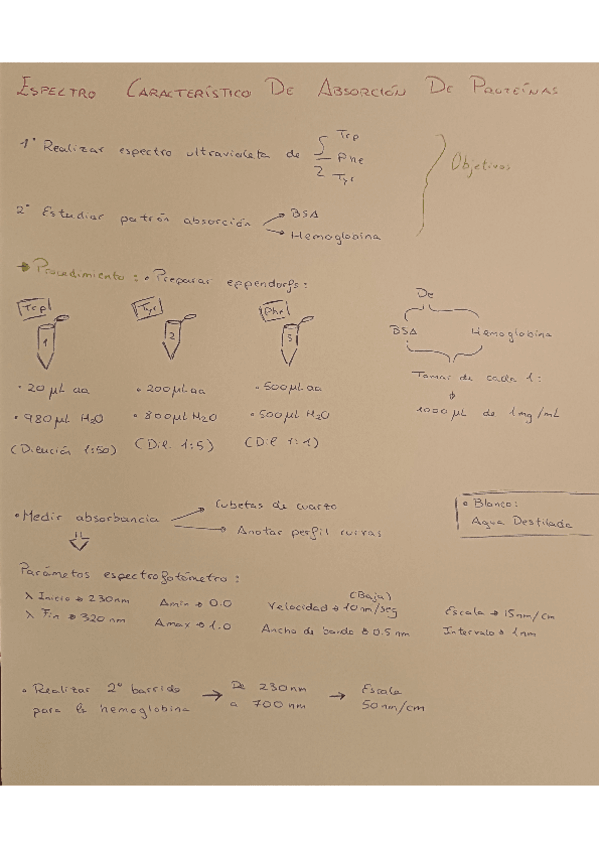 ESPECTRO CARACTERÍSTICO DE ABSORCIÓN DE PROTEÍNAS
1º Realizar espectro ultravioleta de Trp
Phe
Tyr
Objetivos
2º Estudiar patrón absorción → BSA
→ Hemoglobina
→ Procedimiento: • Preparar eppendorfs:
Trp Tyr Phe
1 2 3
• 20 µL aa • 200 µL aa • 500 µL aa
• 980 µL H2O • 800 µL H2O • 500 µL H2O
(Dilución 1:50) (Dil. 1:5) (Dil 1:1)
De
BSA Hemoglobina
Tomar de cada 1:
1000 µL de 1 mg/mL
• Medir absorbancia → Cubetas de cuarzo
→ Anotar perfil curvas
• Blanco:
Agua Destilada
Parámetos espectrofotómetro:
λ Inicio → 230nm Amin → 0.0 Velocidad → 10nm/seg (Baja) Escala → 15nm/cm
λ Fin → 320 nm Amax → 1.0 Ancho de banda → 0.5 nm Intervalo → 1nm
• Realizar 2º barrido → De 230nm → Escala
para la hemoglobina a 700nm 50nm/cm